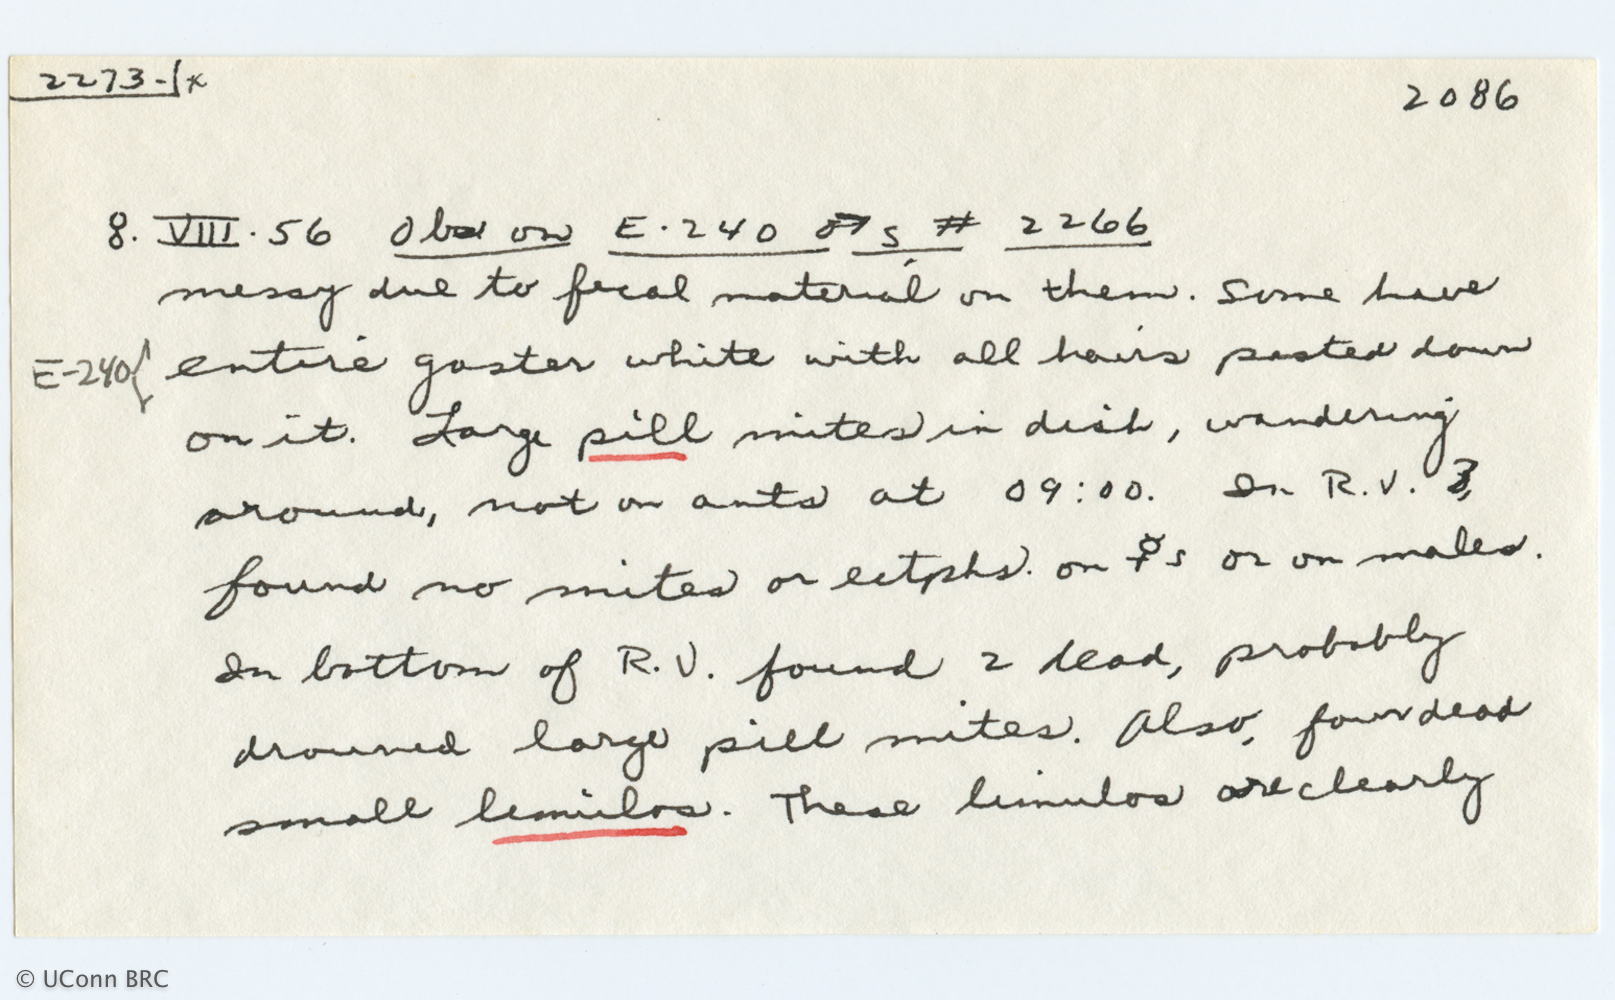 2273-1 *
2086
8. VIII. 56 Obs on E-240 ♂s # 2266
messy due to fecal material on them. Some have
E-240 { entire gaster white with all hairs pasted down
on it. Large pill mites in dish, wandering
around, not on ants at 09:00. In R.V.
found no mites or ectphs. on ☿s or on males.
In bottom of R.V. found 2 dead, probably
drowned large pill mites. Also, four dead
small limulos. These limulos are clearly
© UConn BRC